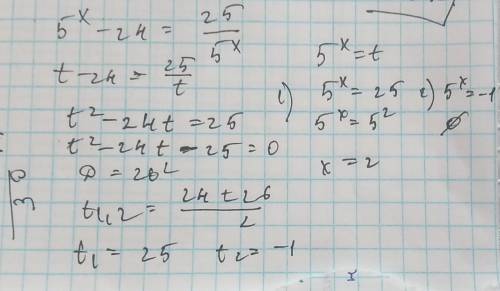 5^x - 24 = 25/5^x
t - 24 = 25/t
t² - 24t = 25
t² - 24t - 25 = 0
D = 26²
t1,2 = (24 ± 26)/2
t1 = 25 t2 = -1
5^x = t
1) 5^x = 25 2) 5^x = -1
5^x = 5² ∅
x = 2